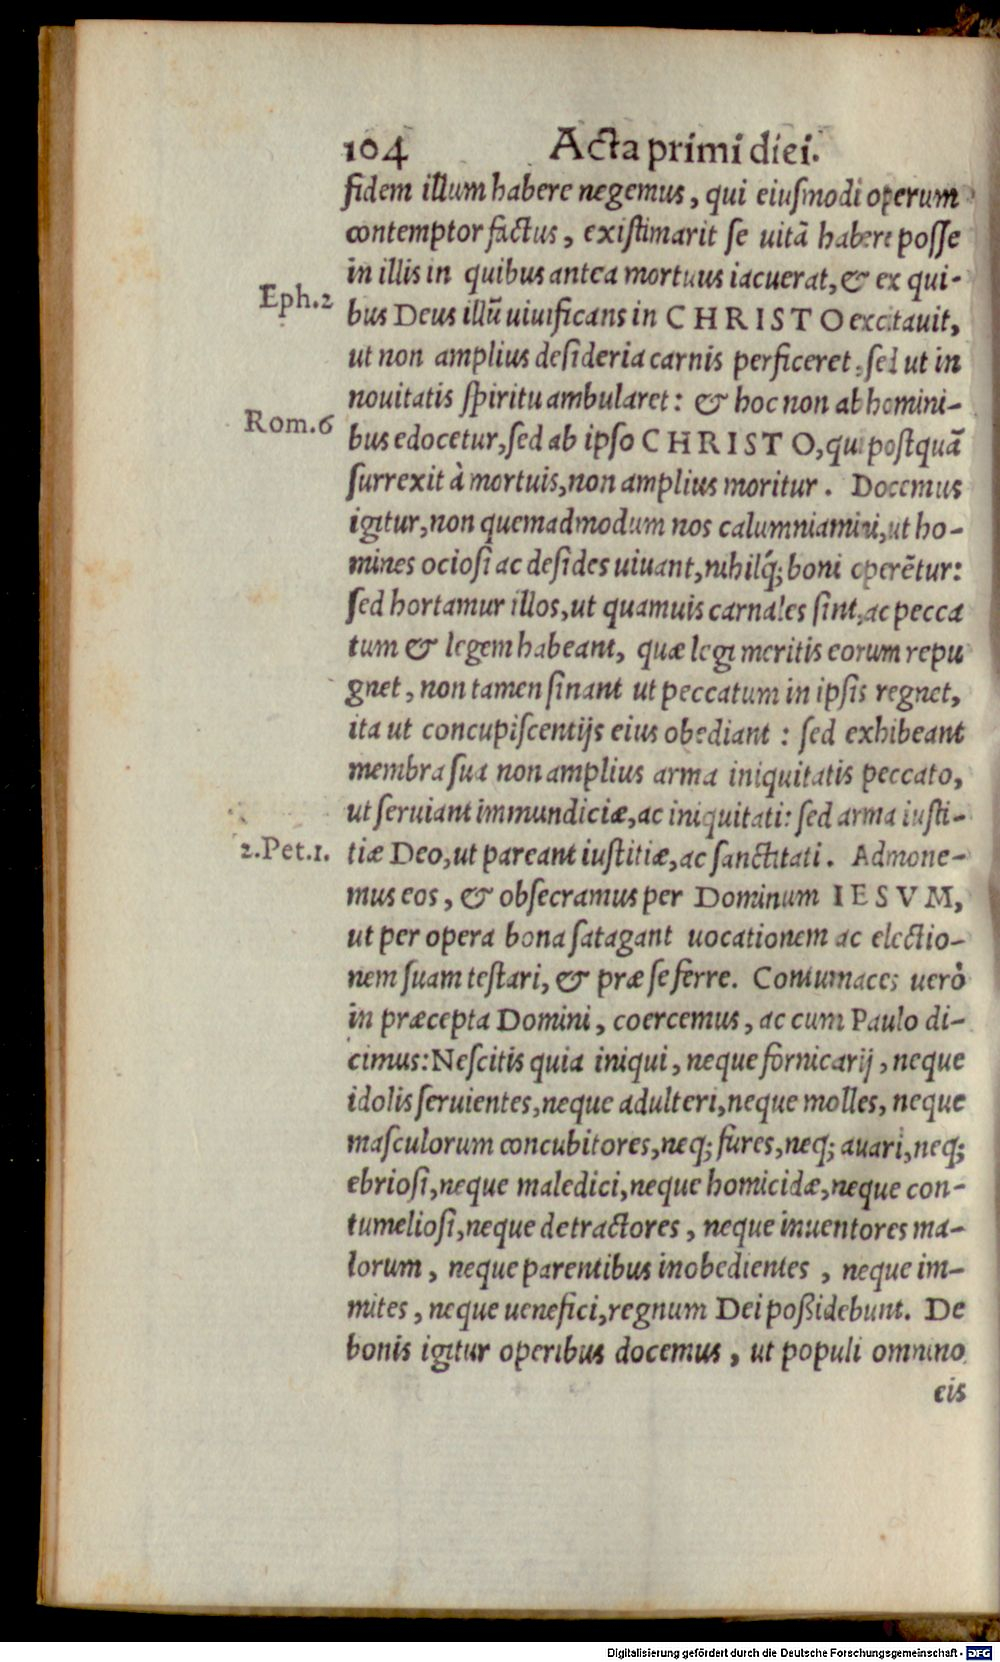 104 Acta primi diei.
fidem illum habere negemus, qui eiuſmodi operum
contemptor factus, exiſtimarit ſe uitā habere poſſe
in illis in quibus antea mortuus iacuerat, & ex qui-
Eph.2
bus Deus illū uiuificans in CHRISTO excitauit,
ut non amplius deſideria carnis perficeret, ſed ut in
nouitatis ſpiritu ambularet: & hoc non ab homini-
Rom.6
bus edocetur, ſed ab ipſo CHRISTO, qui poſtquā
ſurrexit à mortuis, non amplius moritur. Docemus
igitur, non quemadmodum nos calumniamini, ut ho-
mines ocioſi ac deſides uiuant, nihilq́; boni operētur:
ſed hortamur illos, ut quamuis carnales ſint, ac pecca
tum & legem habeant, quæ legi meritis eorum repu
gnet, non tamen ſinant ut peccatum in ipſis regnet,
ita ut concupiſcentijs eius obediant: ſed exhibeant
membra ſua non amplius arma iniquitatis peccato,
ut ſeruiant immundiciæ, ac iniquitati: ſed arma iuſti-
2.Pet.1.
tiæ Deo, ut pareant iuſtitiæ, ac ſanctitati. Admone-
mus eos, & obſecramus per Dominum IESVM,
ut per opera bona ſatagant uocationem ac electio-
nem ſuam teſtari, & præ ſe ferre. Contumaces uerò
in præcepta Domini, coercemus, ac cum Paulo di-
cimus: Neſcitis quia iniqui, neque fornicarij, neque
idolis ſeruientes, neque adulteri, neque molles, neque
maſculorum concubitores, neq; fures, neq; auari, neq;
ebrioſi, neque maledici, neque homicidæ, neque con-
tumelioſi, neque detractores, neque inuentores ma-
lorum, neque parentibus inobedientes, neque im-
mites, neque uenefici, regnum Dei poßidebunt. De
bonis igitur operibus docemus, ut populi omnino
eis
Digitalisierung gefördert durch die Deutsche Forschungsgemeinschaft - DFG